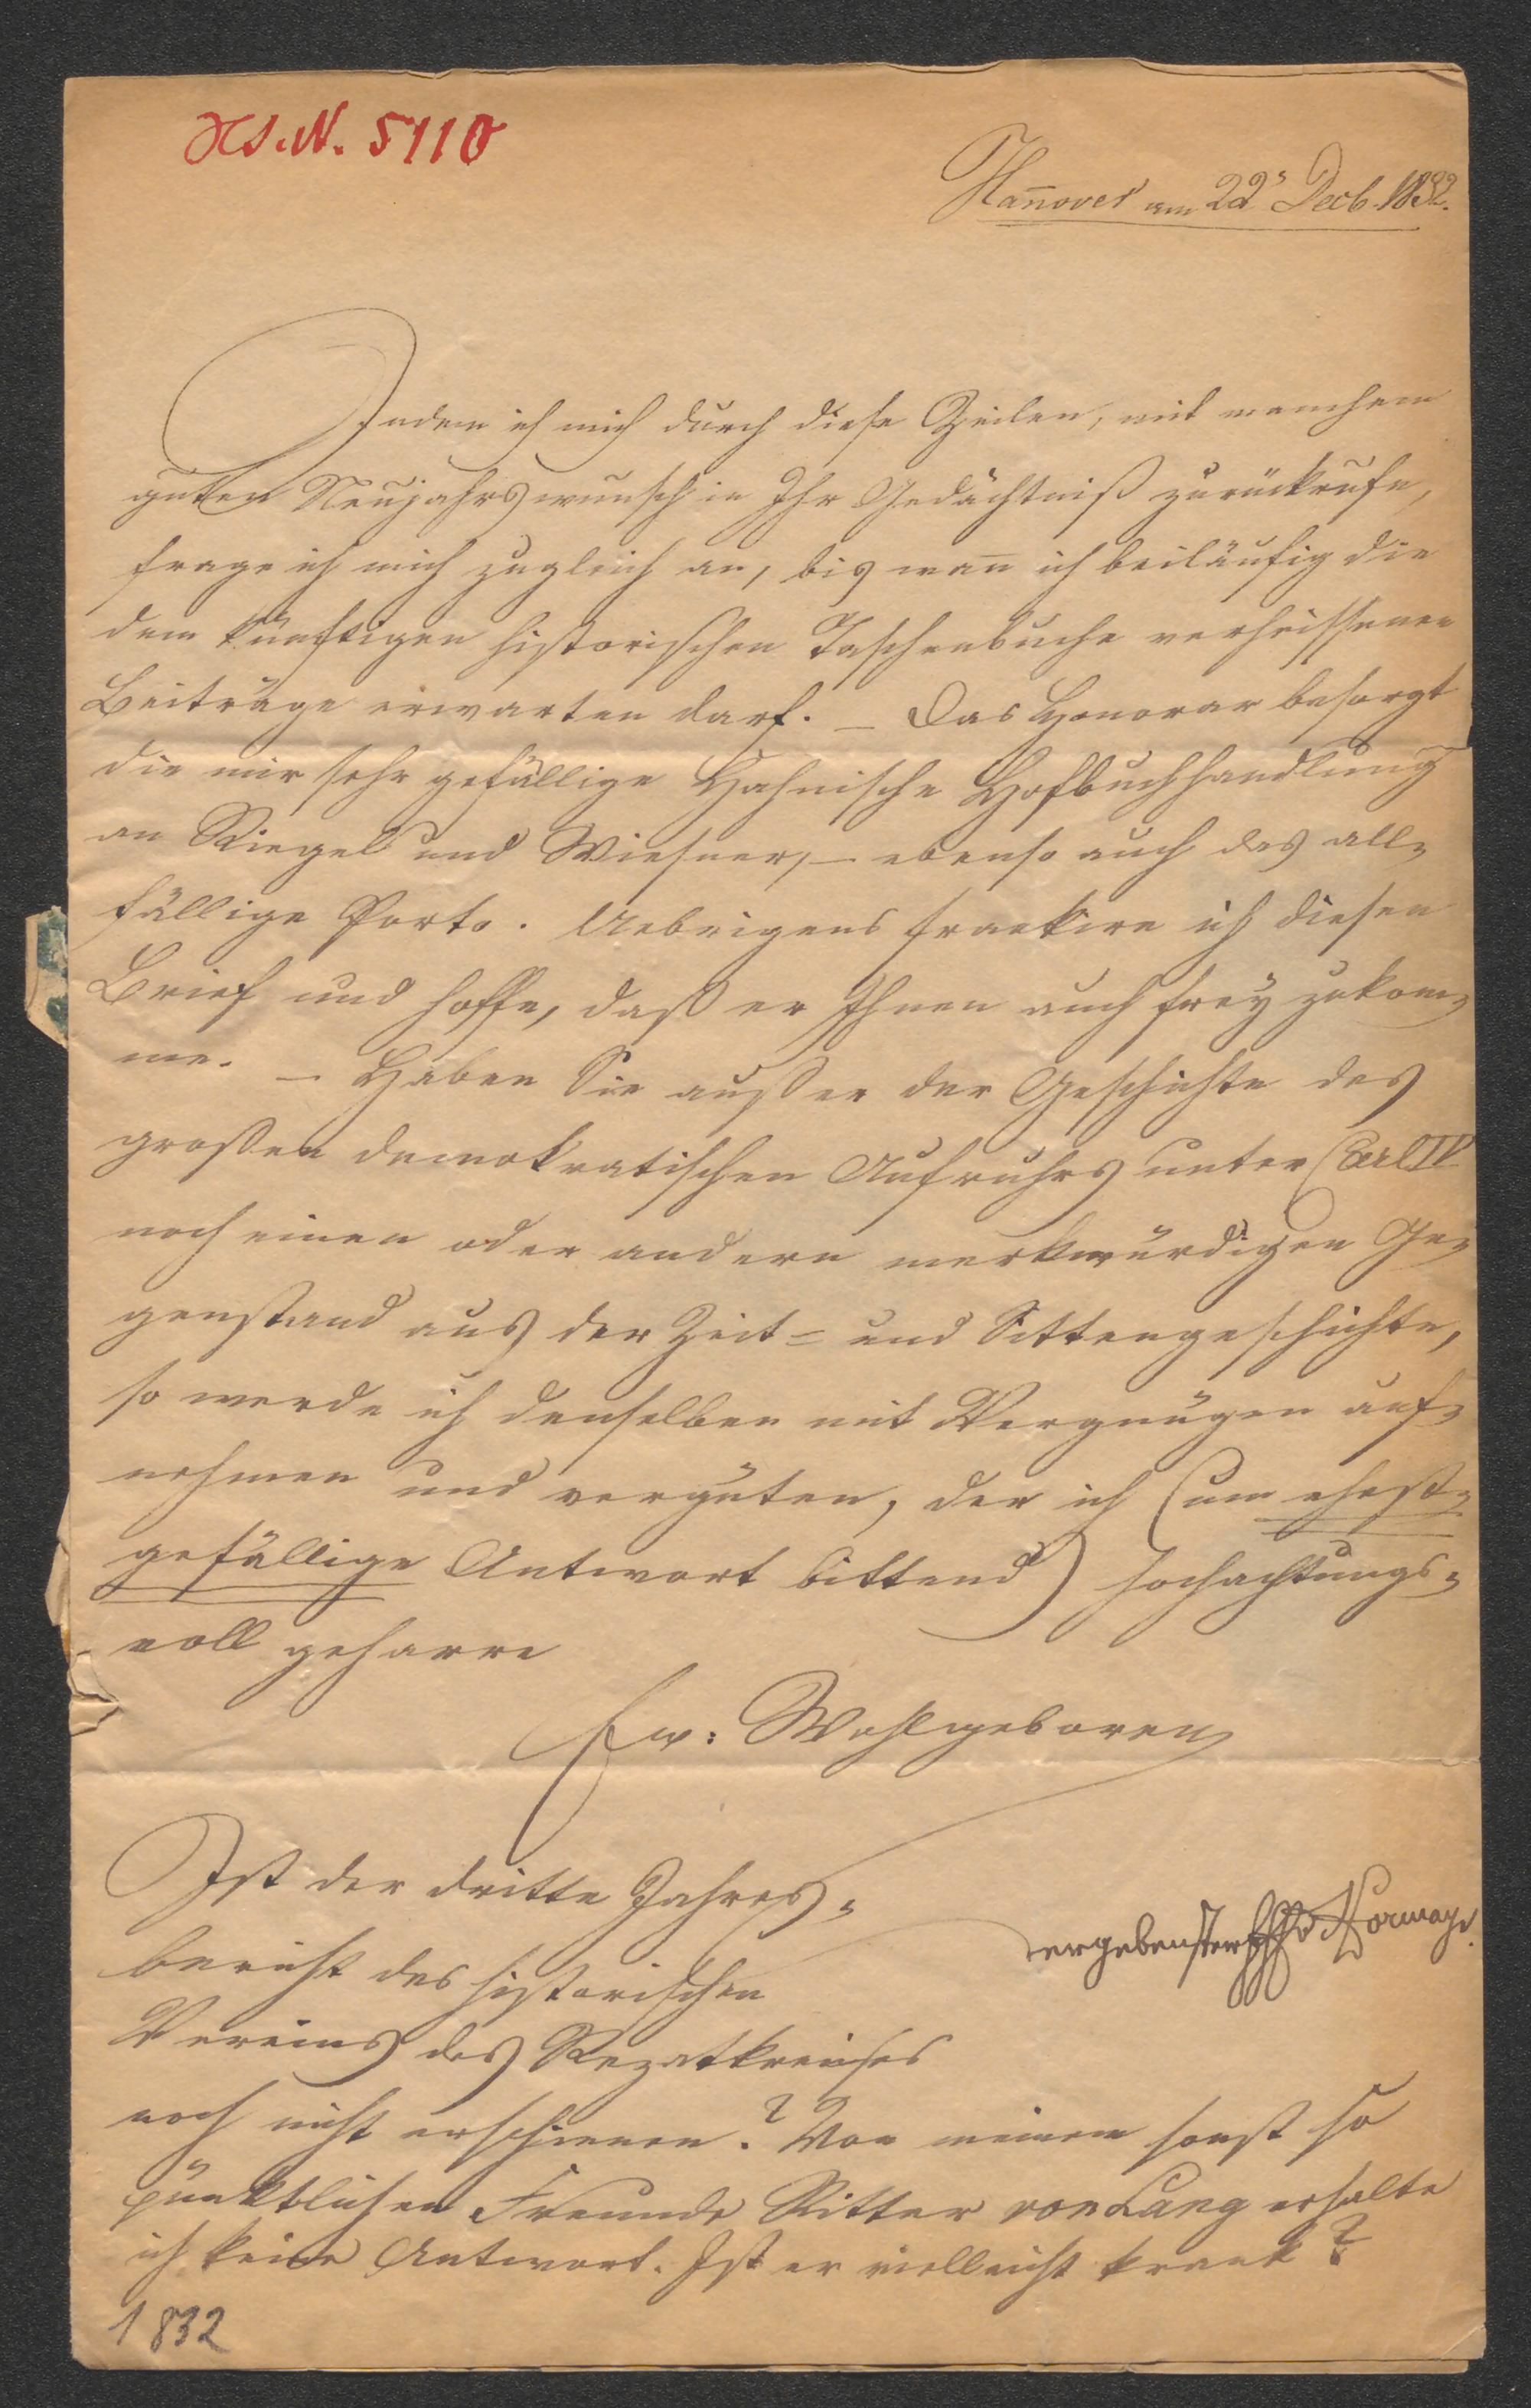 Hs. N. 5110
Hañover am 22ˢ Decb. 1832.
Indem ich mich durch diese Zeilen, mit manchem
guten Neujahrswunsch in Ihr Gedächtniß zurückrufe,
frage ich mich zugleich an, bis wañ ich beiläufig die
dem künftigen historischen Taschenbuche verheissenen
Beiträge erwarten darf. – Das Honorar besorgt
die mir sehr gefällige Hahnische Hofbuchhandlung
an Riegel und Wießner, – ebenso auch das all-
fällige Porto. Uebrigens frankire ich diesen
Brief und hoffe, daß er Ihnen auch frey zukom-
me. – Haben Sie außer der Geschichte des
großen demokratischen Aufruhrs unter Carl IV
noch einen oder andern merkwürdigen Ge-
genstand aus der Zeit- und Sittengeschichte,
so werde ich denselben mit Vergnügen auf-
nehmen und vergüten, der ich (um ehest-
gefällige Antwort bittend) hochachtungs-
voll geharre
Ew. Wohlgeboren
ergebenster Hormayr.
Ist der dritte Jahres-
bericht des historischen
Vereins des Rezatkreises
noch nicht erschienen? Von meinem sonst so
pünktlichen Freunde Ritter von Lang erhalte
ich keine Antwort. Ist er vielleicht krank?
1832